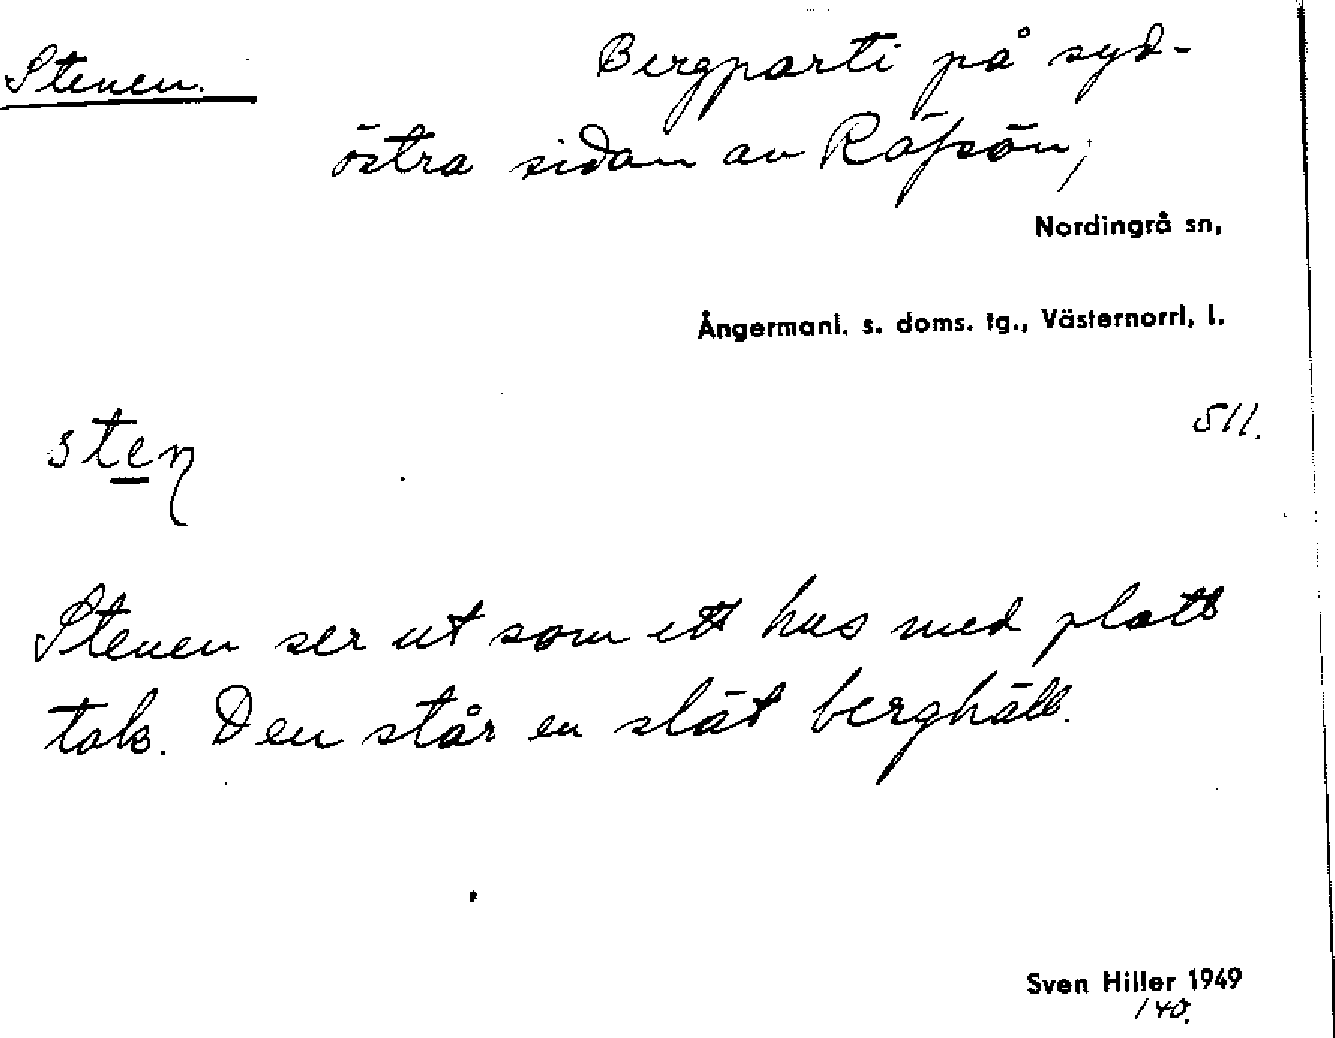 Stenen.
Bergparti på syd-
östra sidan av Räfsön,
Nordingrå sn,
Ångermanl. s. doms. tg., Västernorrl. l.
511.
sten
Stenen ser ut som ett hus med platt
tak. Den står en slät berghäll.
Sven Hiller 1949
140.